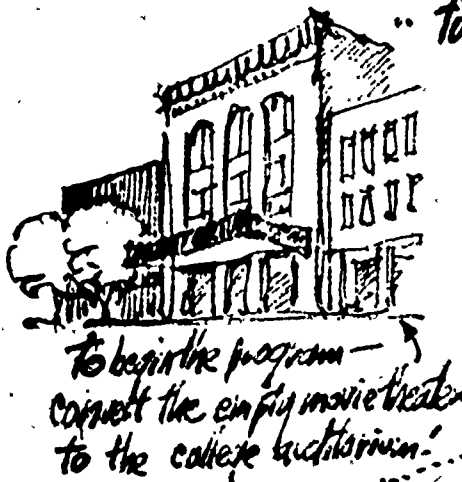 .. to
to begin the program —
convert the empty movie theater
to the college auditorium!